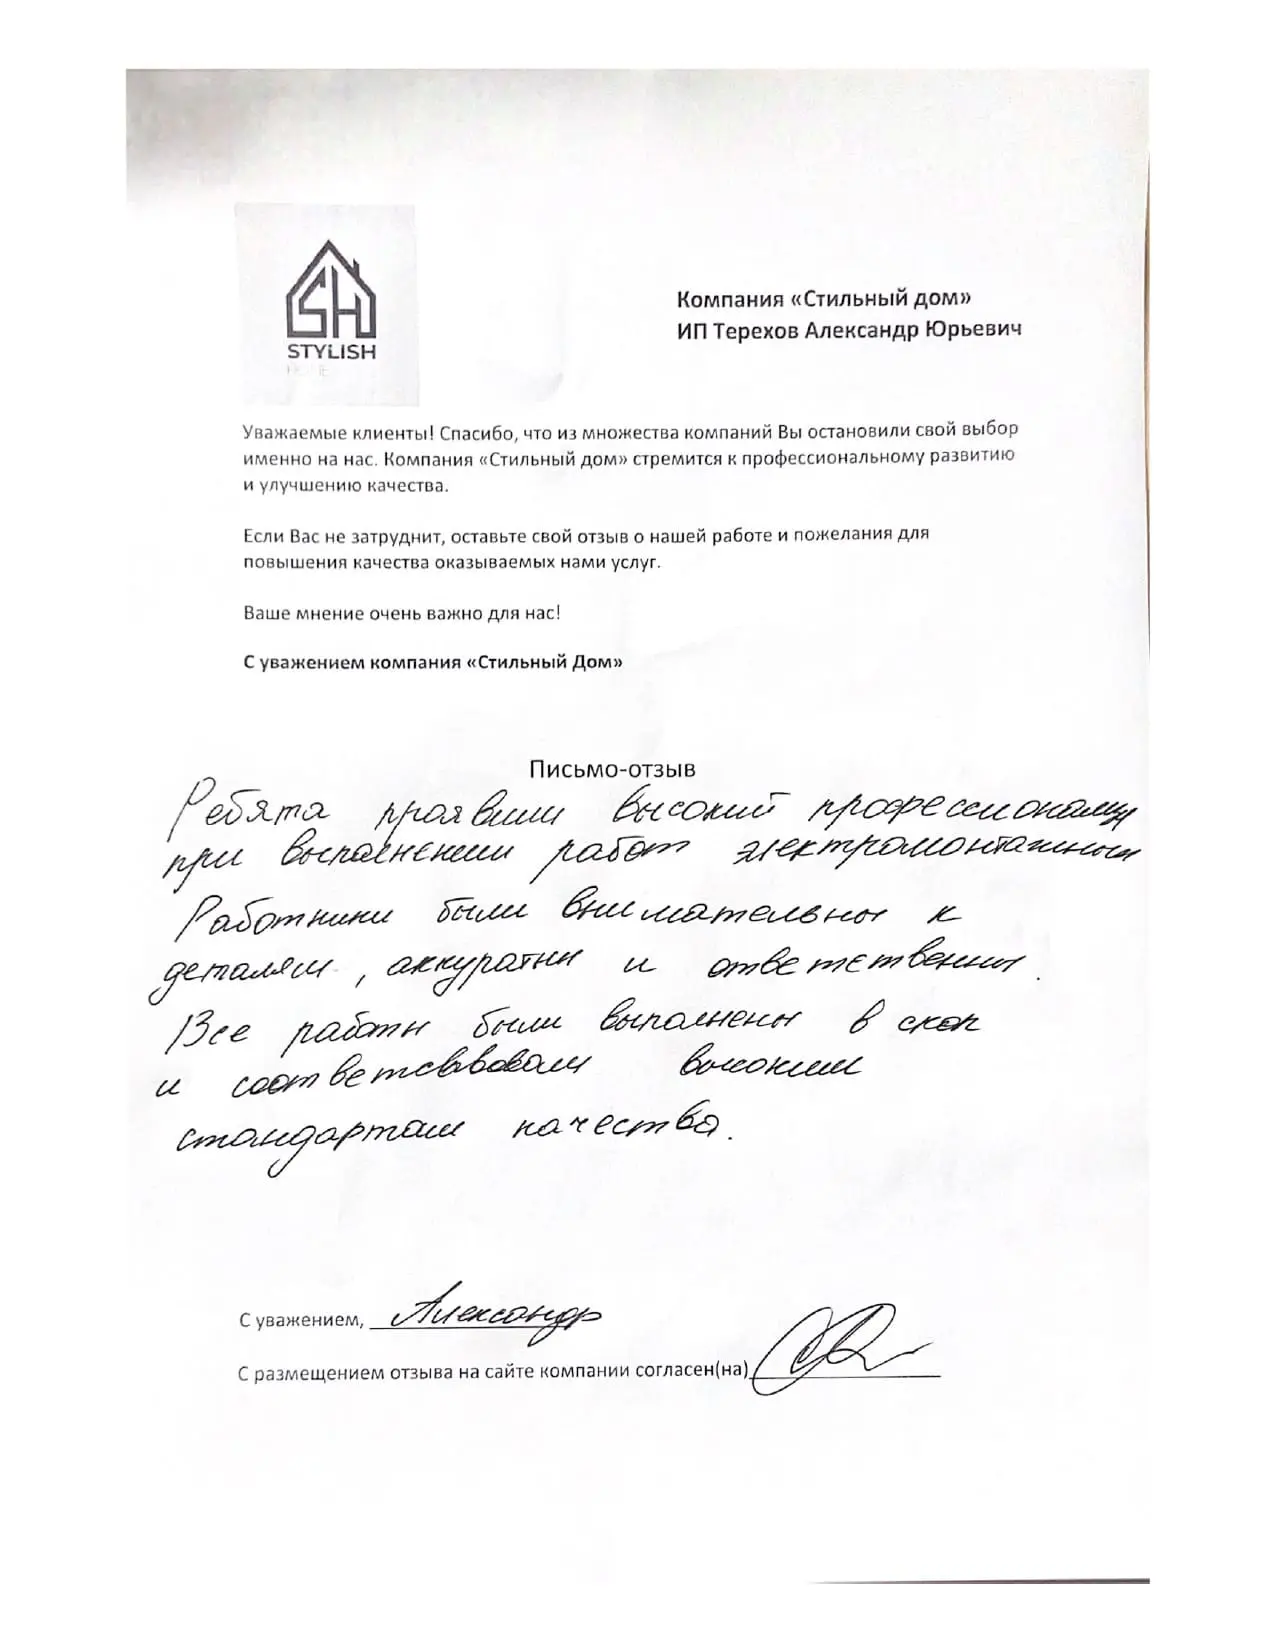 SH
STYLISH
HOME
Компания «Стильный дом»
ИП Терехов Александр Юрьевич
Уважаемые клиенты! Спасибо, что из множества компаний Вы остановили свой выбор
именно на нас. Компания «Стильный дом» стремится к профессиональному развитию
и улучшению качества.
Если Вас не затруднит, оставьте свой отзыв о нашей работе и пожелания для
повышения качества оказываемых нами услуг.
Ваше мнение очень важно для нас!
С уважением компания «Стильный Дом»
Письмо-отзыв
Ребята проявили высокий профессионализм
при выполнении работ электромонтажных
Работники были внимательны к
деталям, аккуратны и ответственны.
Все работы были выполнены в срок
и соответствовали высоким
стандартам качества.
С уважением, Александр
С размещением отзыва на сайте компании согласен(на)